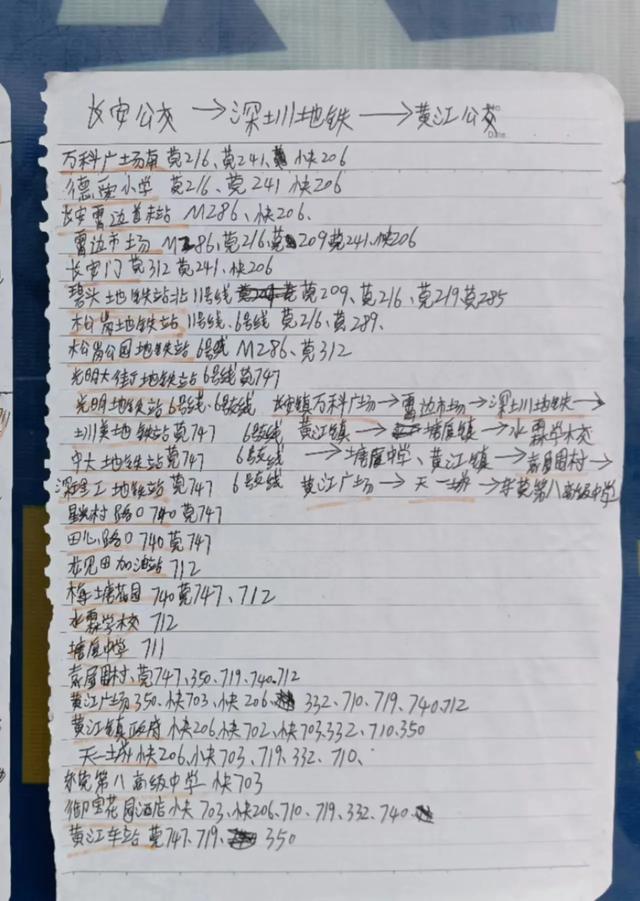 长安公交→深圳地铁→黄江公交
万科广场南 莞216、莞241、快206
德爱小学 莞216、莞241 快206
长安雷边首末站 M286、快206、
雷边市场 M286、莞216、莞209莞241、快206
长安门 莞312 莞241、快206
碧头地铁站北 11号线 莞209、莞216、莞219莞285
松岗地铁站 11号线、6号线 莞216、莞289、
松岗公园地铁站 6号线 M286、莞312
光明大街地铁站 6号线莞747
光明地铁站 6号线、6号支线 长安镇万科广场→雷边市场→深圳地铁→
圳美地铁站莞747 6号支线 黄江镇→塘厦镇→水霖学校
中大地铁站 莞747 6号支线 →塘厦中学、黄江镇→袁屋围村→
深理工地铁站 莞747 6号支线 黄江广场→天一城→东莞第八高级中学
路口740莞747
田心路口740莞747
龙见田加油站 712
梅塘花园 740莞747、712
水霖学校 712
塘厦中学 711
袁屋围村、莞747、350、719、740、712
黄江广场 350、快703、快206、332、710、719、740、712
黄江镇政府 快206、快702、快703、332、710、350
天一城 快206、快703、719、332、710、
东莞第八高级中学 快703
御宝花园酒店 快703、快206、710、719、332、740
黄江车站 莞747、719、350